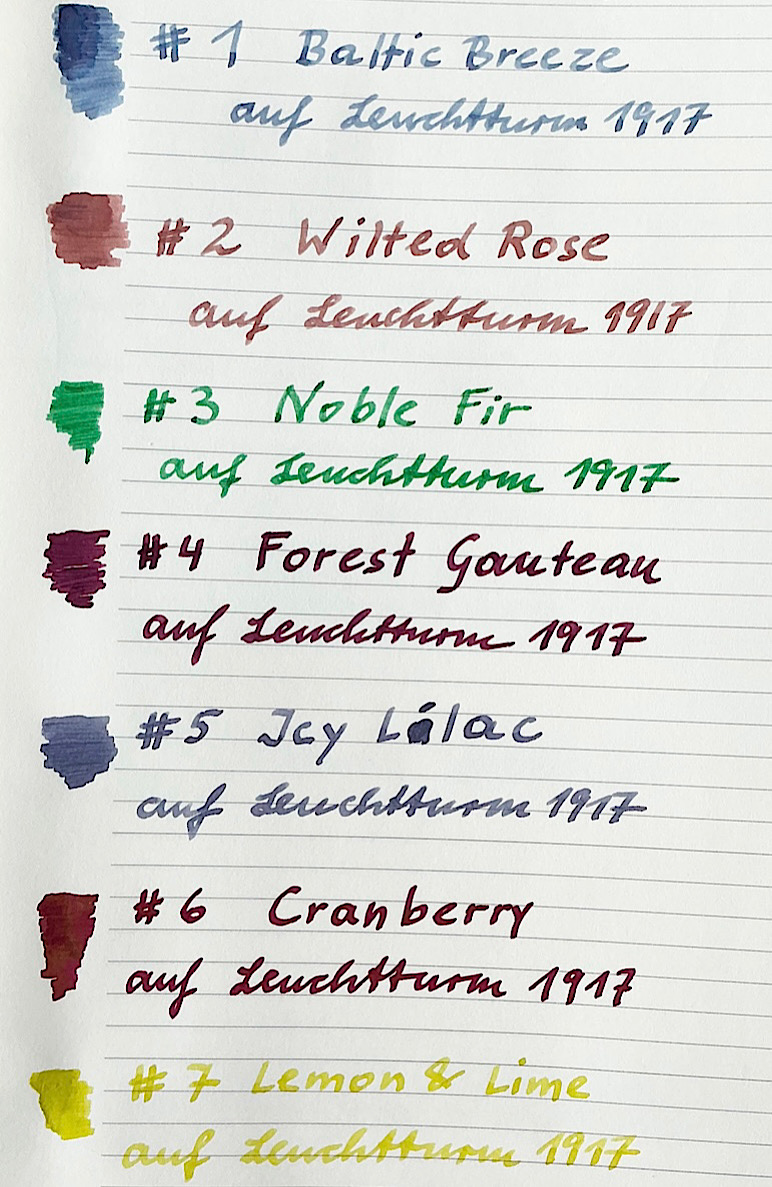 # 1 Baltic Breeze
auf Leuchtturm 1917
# 2 Wilted Rose
auf Leuchtturm 1917
# 3 Noble Fir
auf Leuchtturm 1917
#4 Forest Gauteau
auf Leuchtturm 1917
#5 Icy Lilac
auf Leuchtturm 1917
# 6 Cranberry
auf Leuchtturm 1917
# 7 Lemon & Lime
auf Leuchtturm 1917